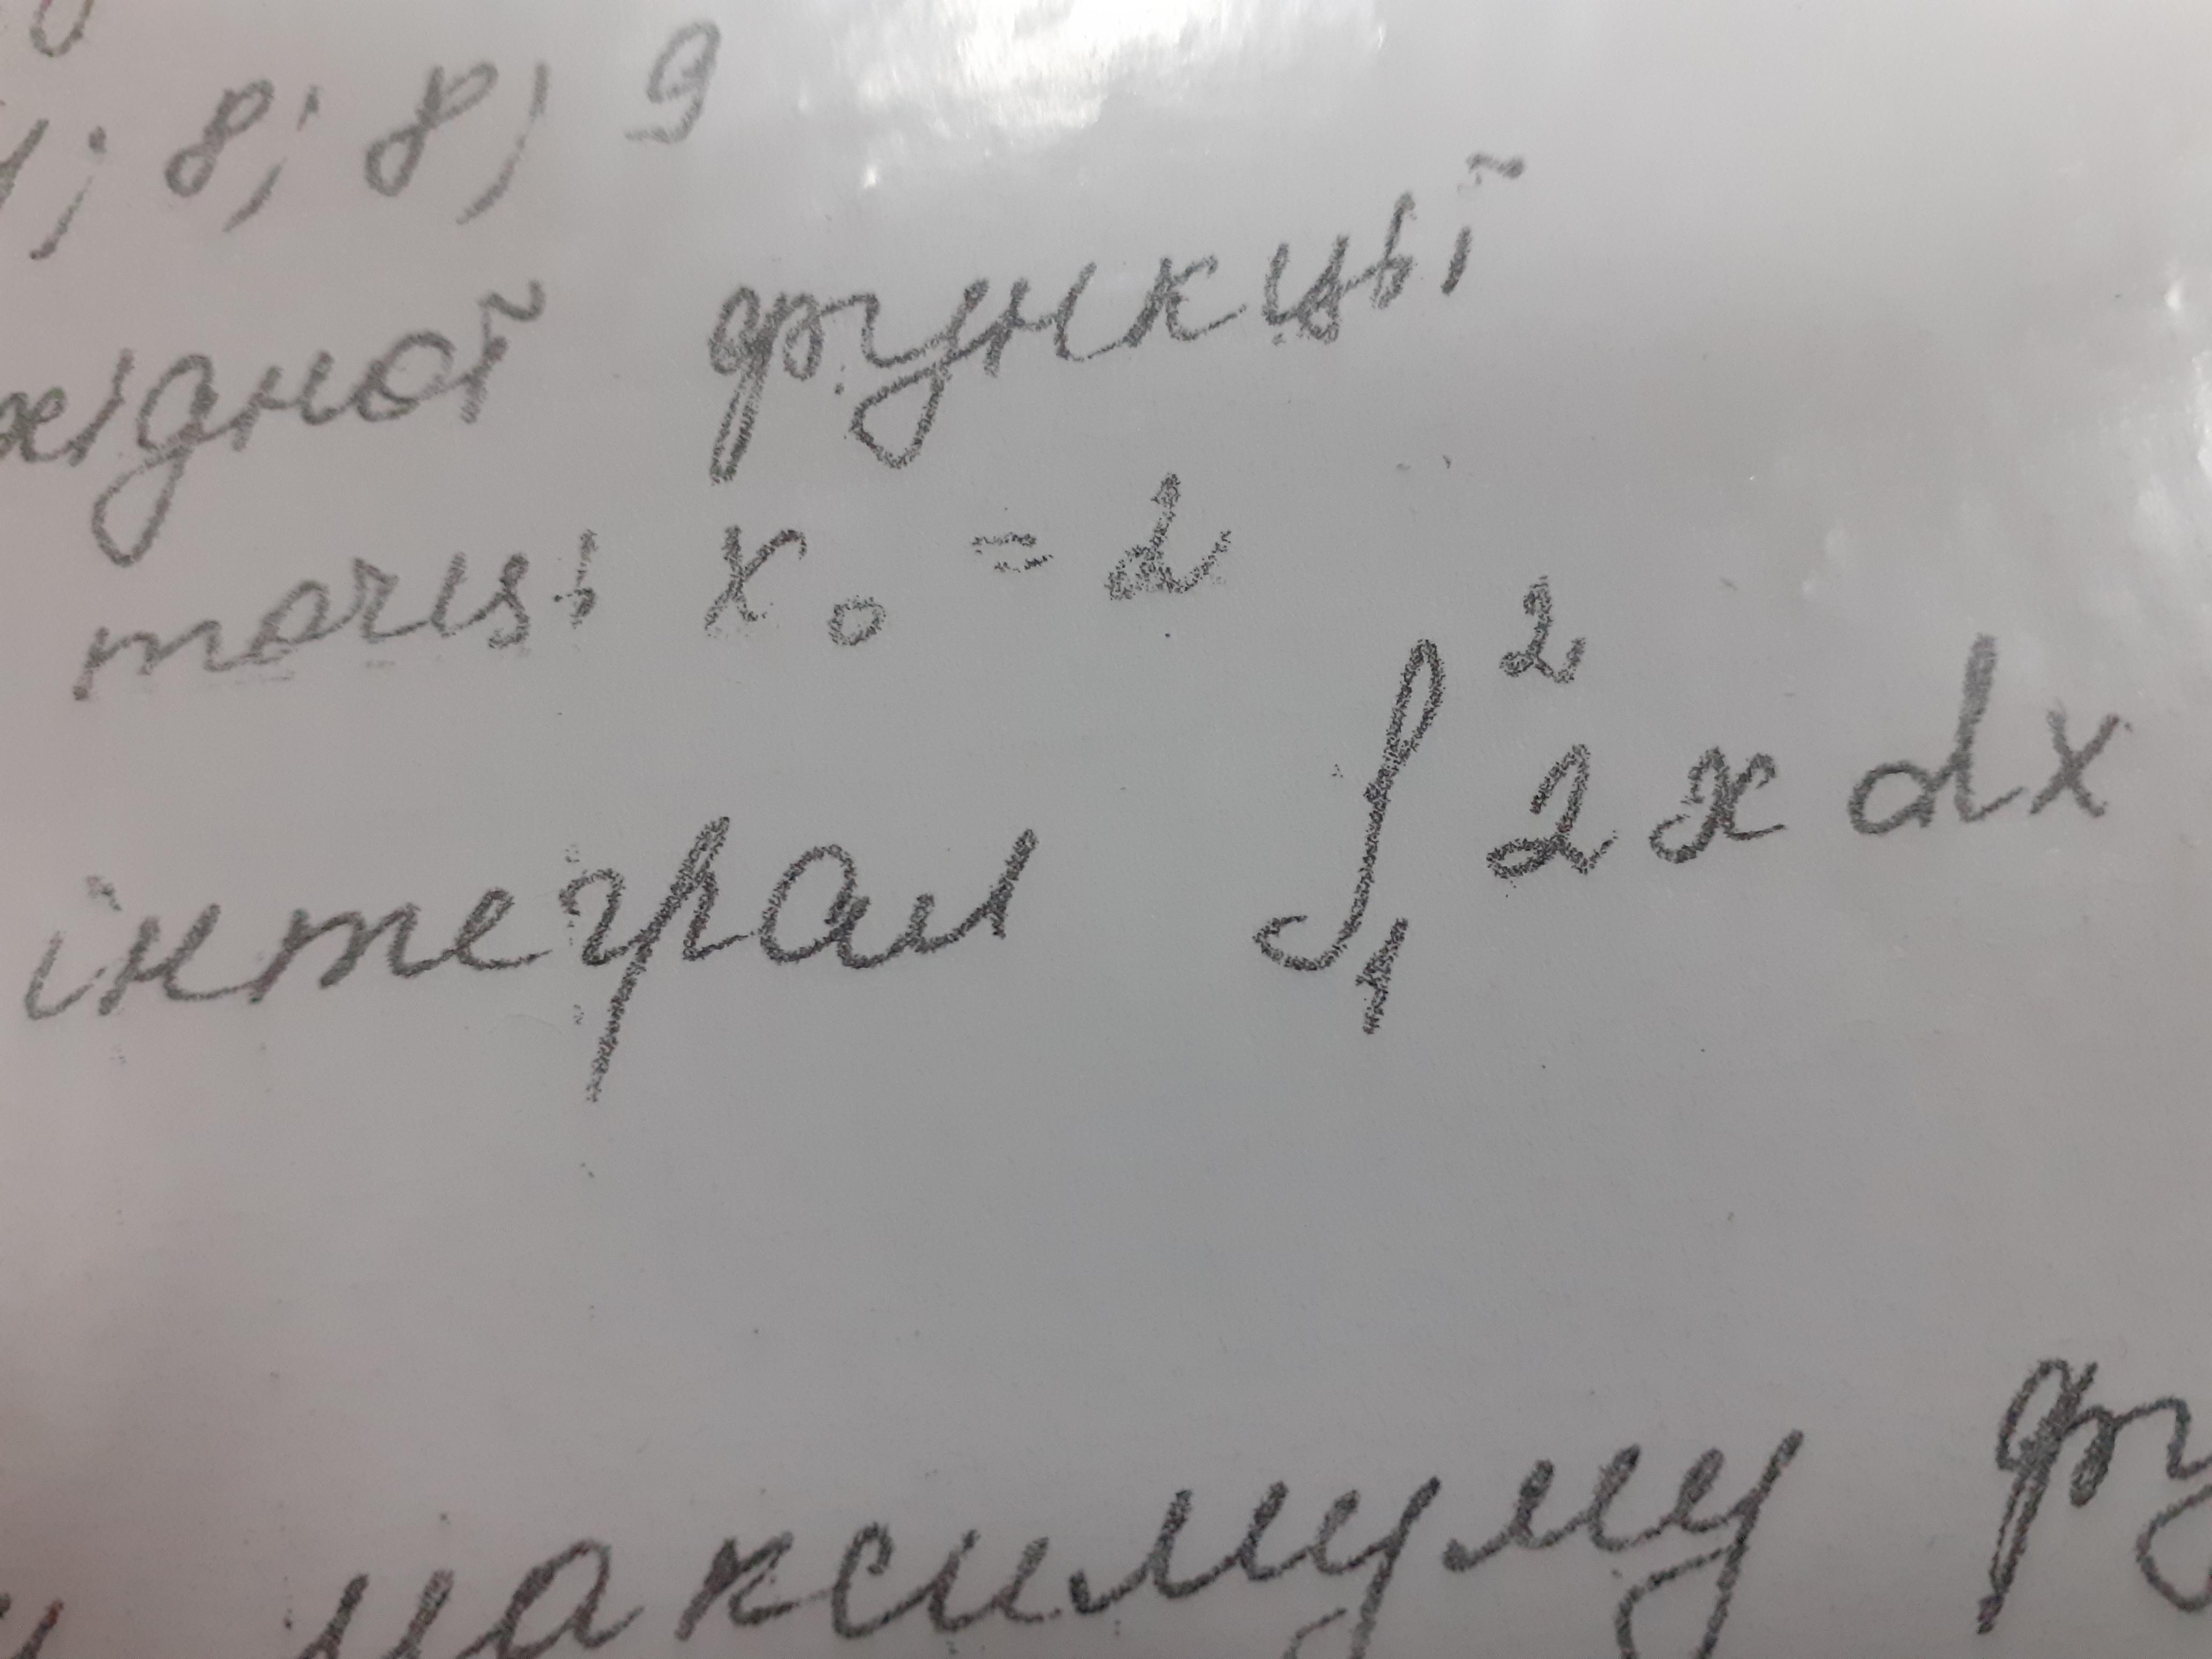 ; 8; 8; 9
хідної функції
точці x₀ = 2
інтеграл ∫₁² 2x dx
максимуму